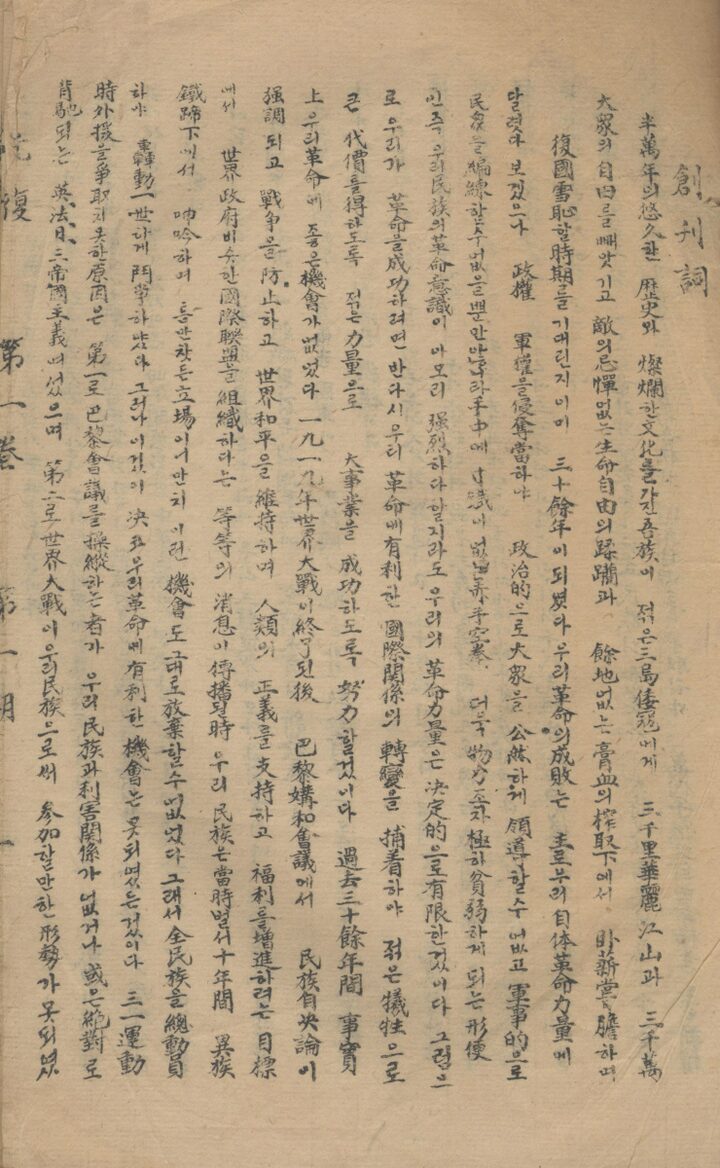 創刊詞
半萬年의悠久한 歷史와 燦爛한文化를가진吾族이 젂은三島倭寇에게 三千里華麗江山과 三千萬
大衆의自由를빼앗기고 敵의忌憚없는生命自由의蹂躪과 餘地없는膏血의榨取下에서 臥薪嘗膽하며
復國雪恥할時期를기대린지이미 三十餘年이되였다 우리革命의成敗는 主로우리自体革命力量에
달렷다보겠으나 政權 軍權을侵奪當하야 政治的으로大衆을公然하게領導할수없고軍事的으로
民衆을編練할수없을뿐만안니라手中에寸鐵이없는弄手空拳 더욱物力조차極히貧弱하게되는形便
인즉우리民族의革命意識이아모리强烈하다할지라도우리의革命力量은決定的으로有限한것이다그럼으
로우리가 革命을成功하려면반다시우리革命에有利한國際關係의轉變을捕着하야 젂은犧牲으로
큰代價를得하도록 젂는力量으로 大事業을成功하도록努力할것이다 過去三十餘年間事實
上우리革命에좋은機會가없었다一九一九年世界大戰이終了된後 巴黎媾和會議에서 民族自决論이
强調되고 戰爭을防止하고世界和平을維持하며人類의正義를支持하고福利를增進하려는目標
에서 世界政府비슷한國際聯盟을組織하다는 等等의消息이傳播될時 우리民族는當時벌서十年間異族
鐵蹄下에서 呻吟하며 틈만찾든立場이어만치이런機會도그대로放棄할수없었다그래서全民族을總動員
하야 轟動一世하게鬪爭하였다그러나이것이決코우리革命에有利한機會는못되였는것이다三一運動
時外援을爭取치못한原因은 第一로巴黎會議를操縱하는者가우리民族과利害關係가없거나或은絶對로
背馳되는英,法,日,三帝國主義여섰으며 第二로世界大戰이우리民族으로써 參加할만한形勢가못되였
復
第一卷 第一期 一